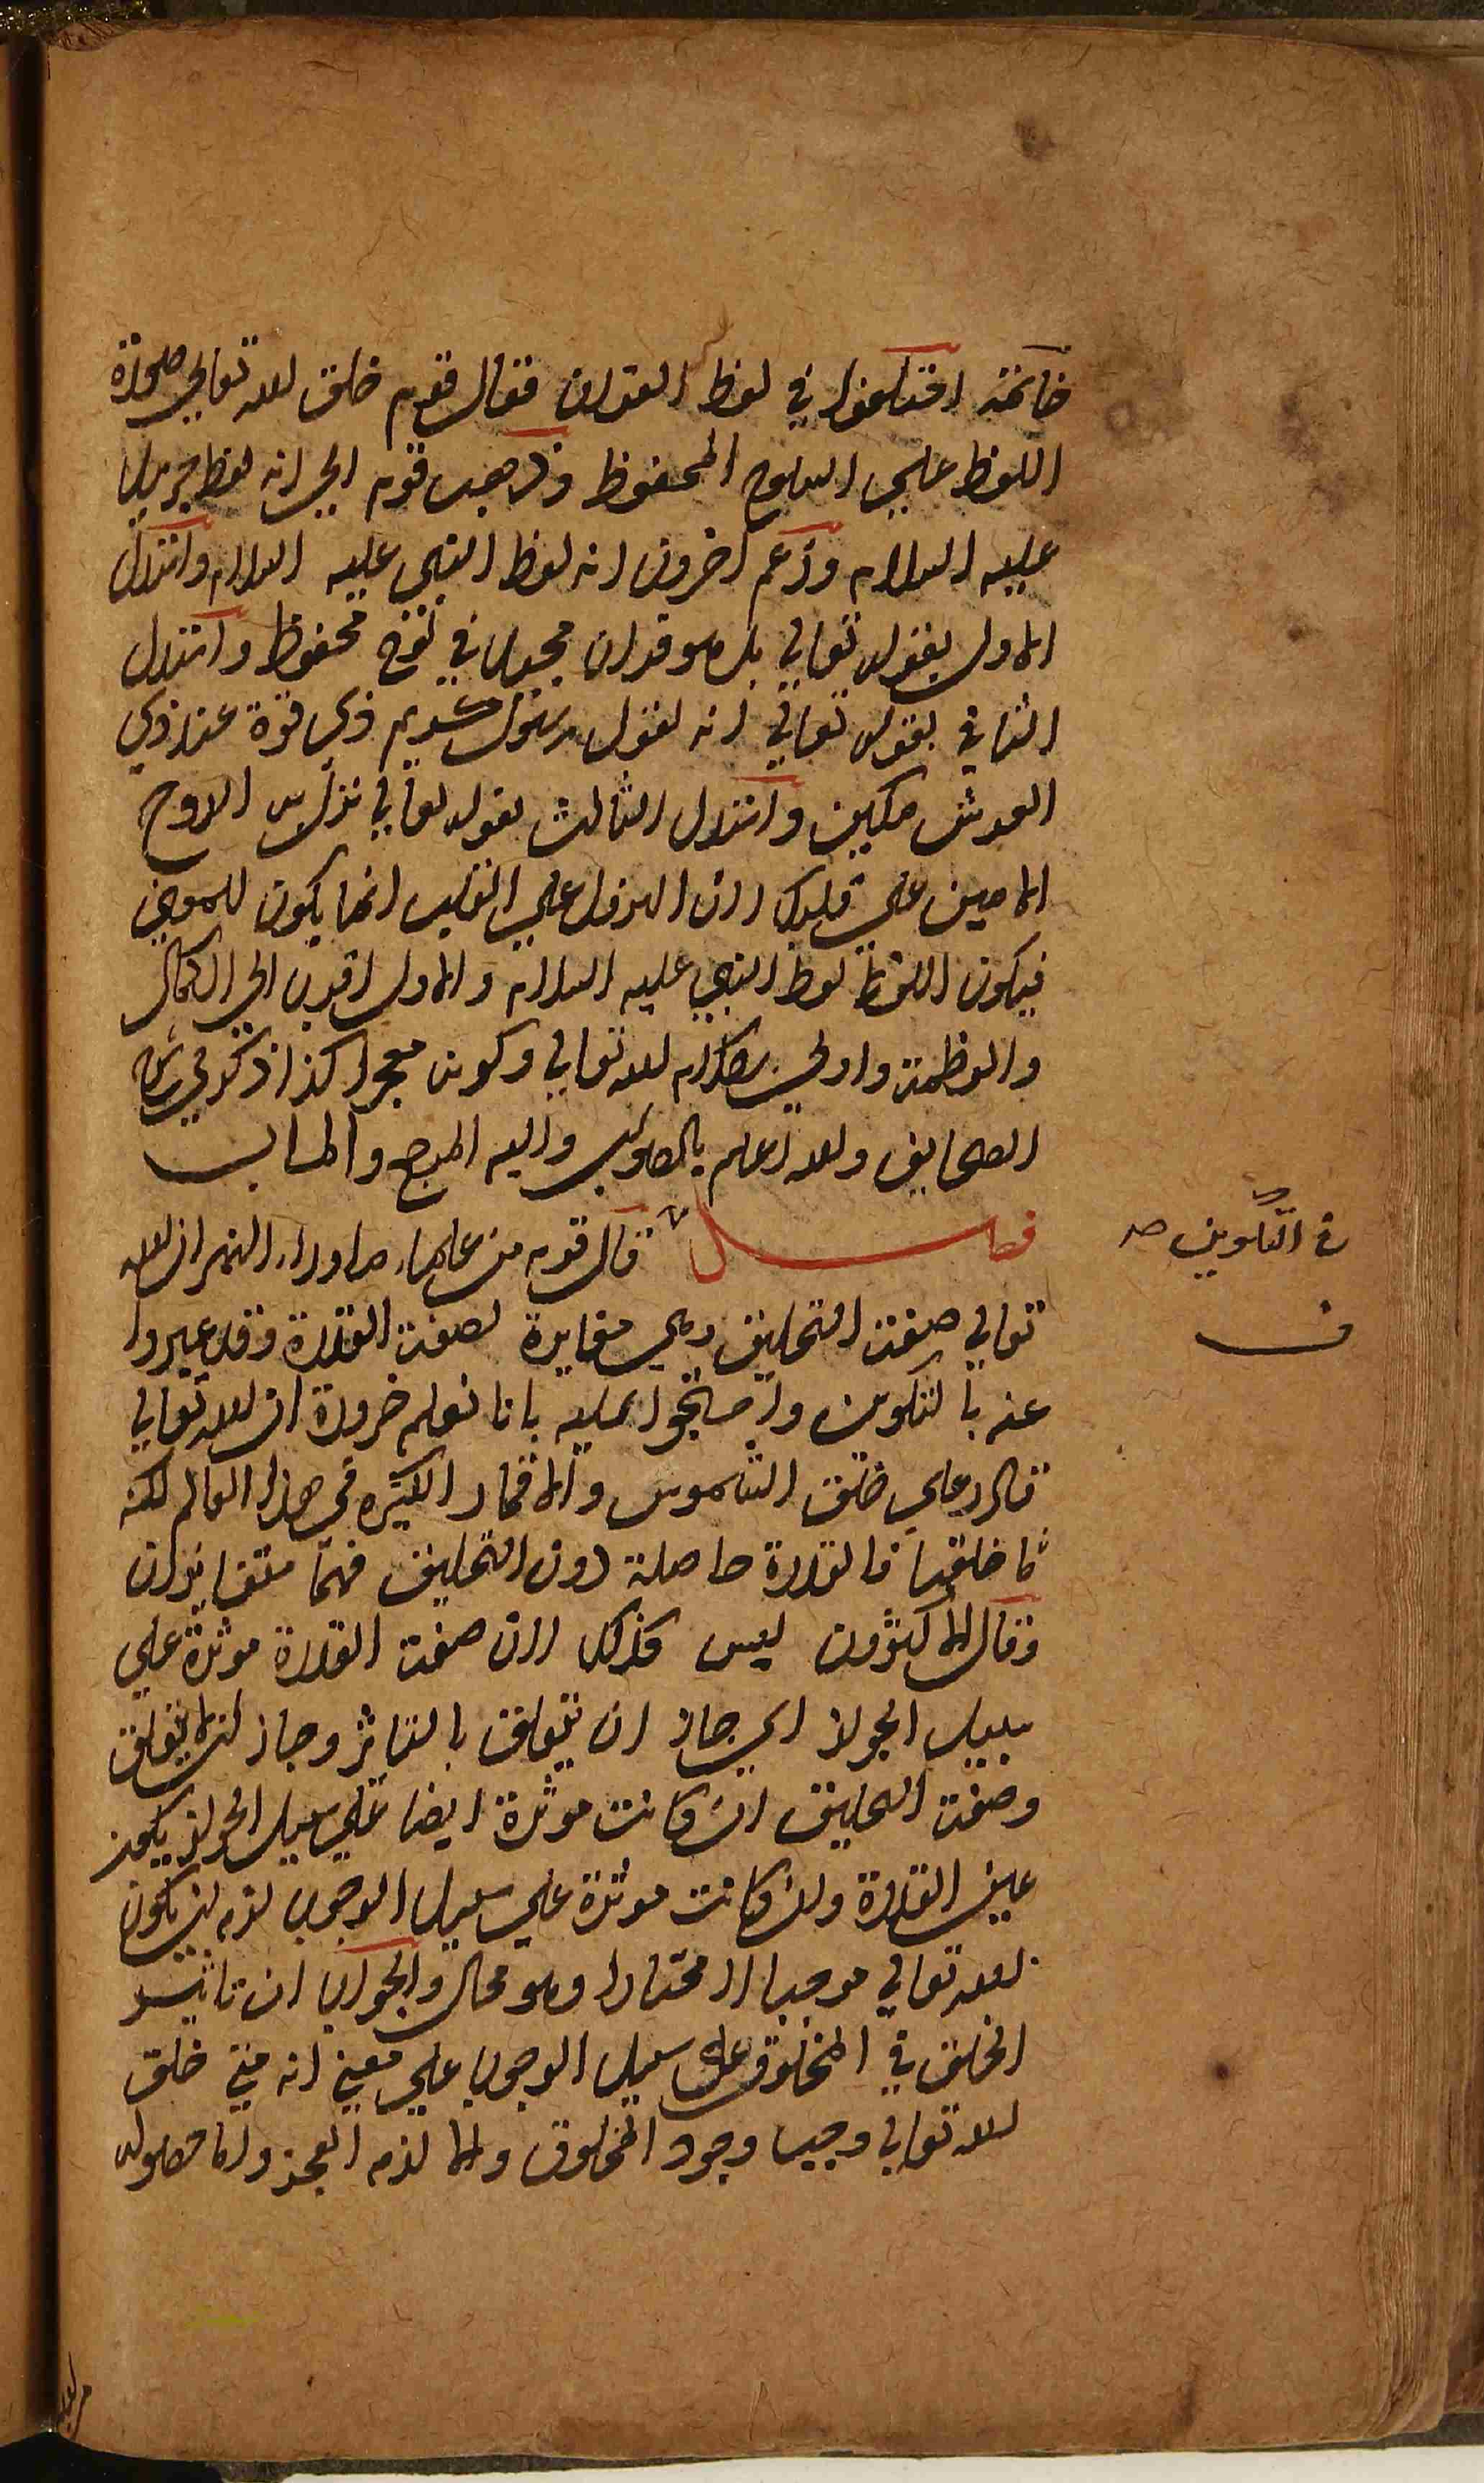 خاتمة اختلفوا في لفظ القران فقال قوم خلق الله تعالي صورة
اللفظ علي اللوح المحفوظ وذهب قوم الي انه لفظ جبريل
عليه السلام وزعم اخرون انه لفظ النبي عليه السلام واستدل
الاول بقوله تعالي بل هو قران مجيد في لوح محفوظ واستدل
الثاني بقوله تعالي انه لقول رسول كريم ذي قوة عند ذي
العرش مكين واستدل الثالث بقوله تعالي نزل به الروح
الامين علي قلبك لان النزول علي القلب انما يكون للمعني
فيكون اللفظ لفظ النبي عليه السلام والاول اقرب الي الكمال
والعظمة واولي بكلام الله تعالي وكونه معجزا كذا ذكر في شرح
الصحايف والله اعلم بالصواب واليه المرجع والماب
فصل قال قوم من علماء ما وراء النهر ان لله
في التكوين صـ
ف
تعالي صفة التخليق وهي مغايرة لصفة القدرة وقد عبروا
عنه بالتكوين واحتجوا عليه بانا نعلم ضرورة ان الله تعالي
قادر علي خلق الشموس والاقمار الكثيره في هذا العالم لكنه
ما خلقها فالقدرة حاصلة دون التخليق فهما متغايران
وقال الاكثرون ليس كذلك لان صفة القدرة موثرة علي
سبيل الجواز اي جاز ان يتعلق بالتاثر وجاز ان لا يتعلق
وصفة التخليق ان كانت موثرة ايضا علي سبيل الجواز يكون
عين القدرة وان كانت موثرة علي سبيل الوجوب لزم ان يكون
الله تعالي موجبا لا مختارا وهو محال والجواب ان تاثير
الخلق في المخلوق علي سبيل الوجوب علي معني انه متي خلق
الله تعالي وجب وجود المخلوق والا لزم العجز واما حصول